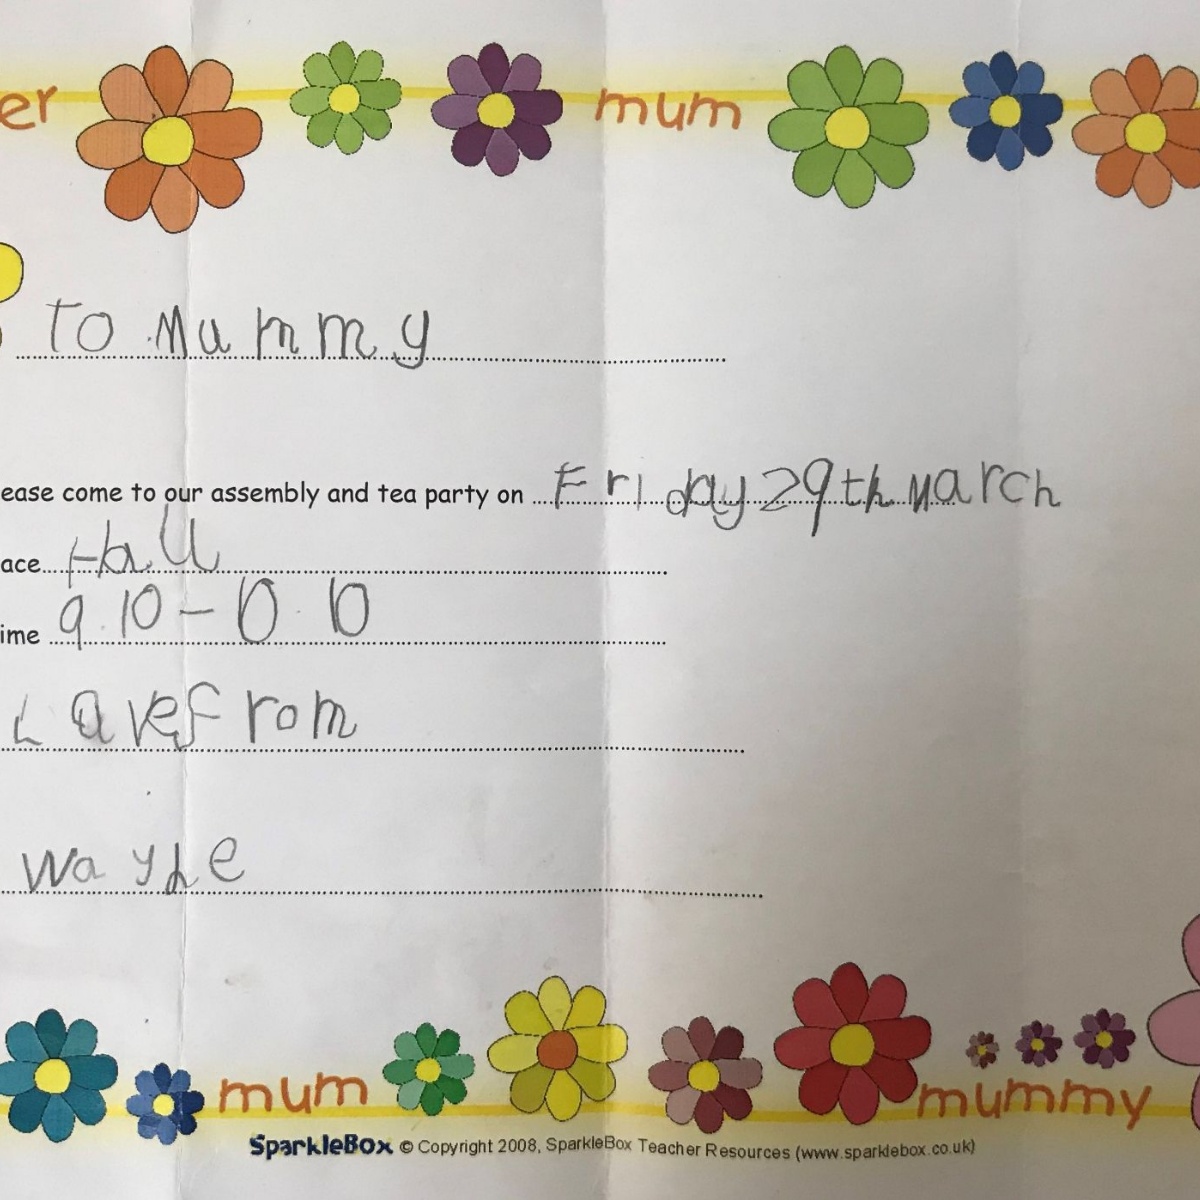 er mum
To Mummy
ease come to our assembly and tea party on Friday 29th March
ace Hall
ime 9.10 - 10.10
Lave from
Wayne
mum mummy
SparkleBox © Copyright 2008, SparkleBox Teacher Resources (www.sparklebox.co.uk)